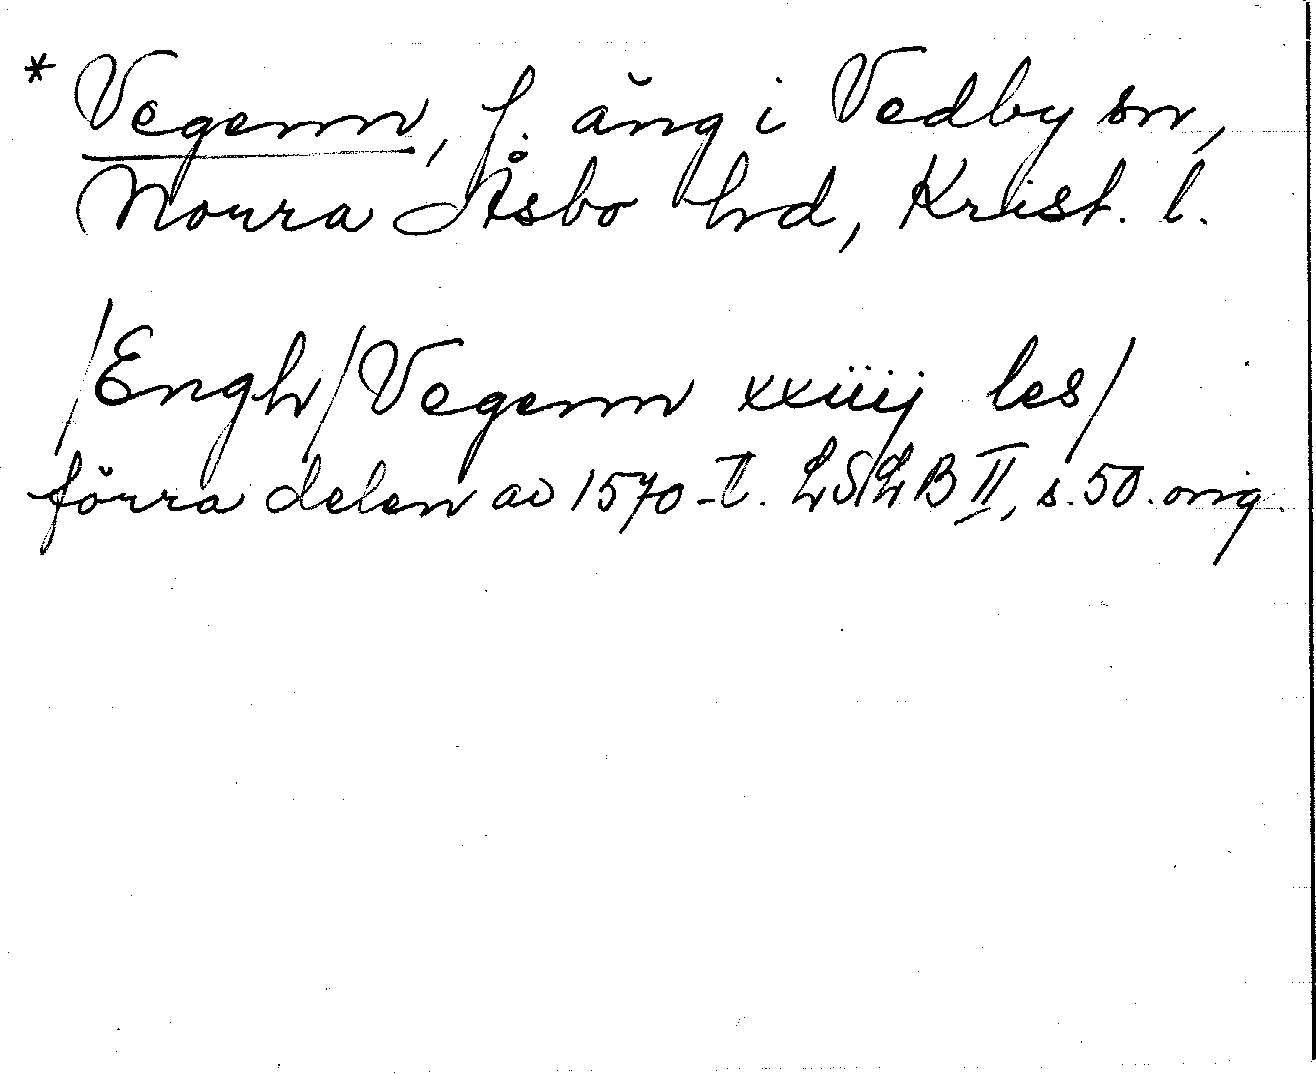 * Vegenn, f. äng i Vedby sn,
Norra Åsbo hd, Krist. l.
/Engh/Vegenn xxiiij les/
förra delen av 1570-t. LSLB II, s. 50. orig.